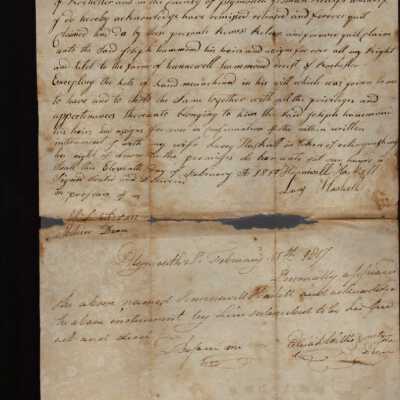 of Rochester and in the County of Plymouth
I do hereby acknowledge have remised released and forever quit
Claimed and do by these presents Remise Release and forever quit claim
unto the said Joseph hammond his heirs and assigns for ever all my Right
and Titel to the farm of hunnewell hammond of Rochester
Excepting the lots of land mentioned in his will which was given to me
to have and to hold the same together with all the privileges and
appertenances thereunto belonging to him the said Joseph hammond
his heirs and assigns for ever in confirmation of the within written
instrument I with my wife Lucy Haskell in token of relinquishing
her right of dower in the premises do hereunto set our hands &
Seals this Eleventh day of February AD 1817 Hunnewell Haskell
Signed Sealed and Delivered
Lucy Haskell
in presence of us
Plymouth Ss. February 11th 1817
Personally appeared
the above named Hunnewell Haskell and acknowledged
the above instrument by him subscribed to be his free
act and deed
Before me